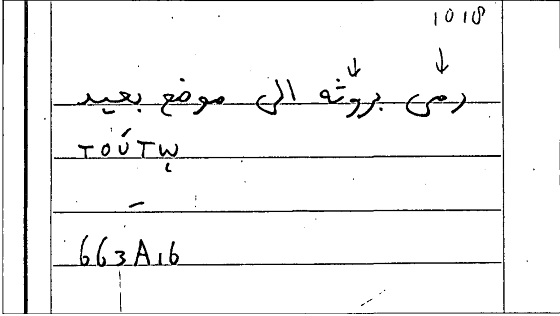 1018
رمى بروثه الى موضع بعيد
τούτῳ
663A16